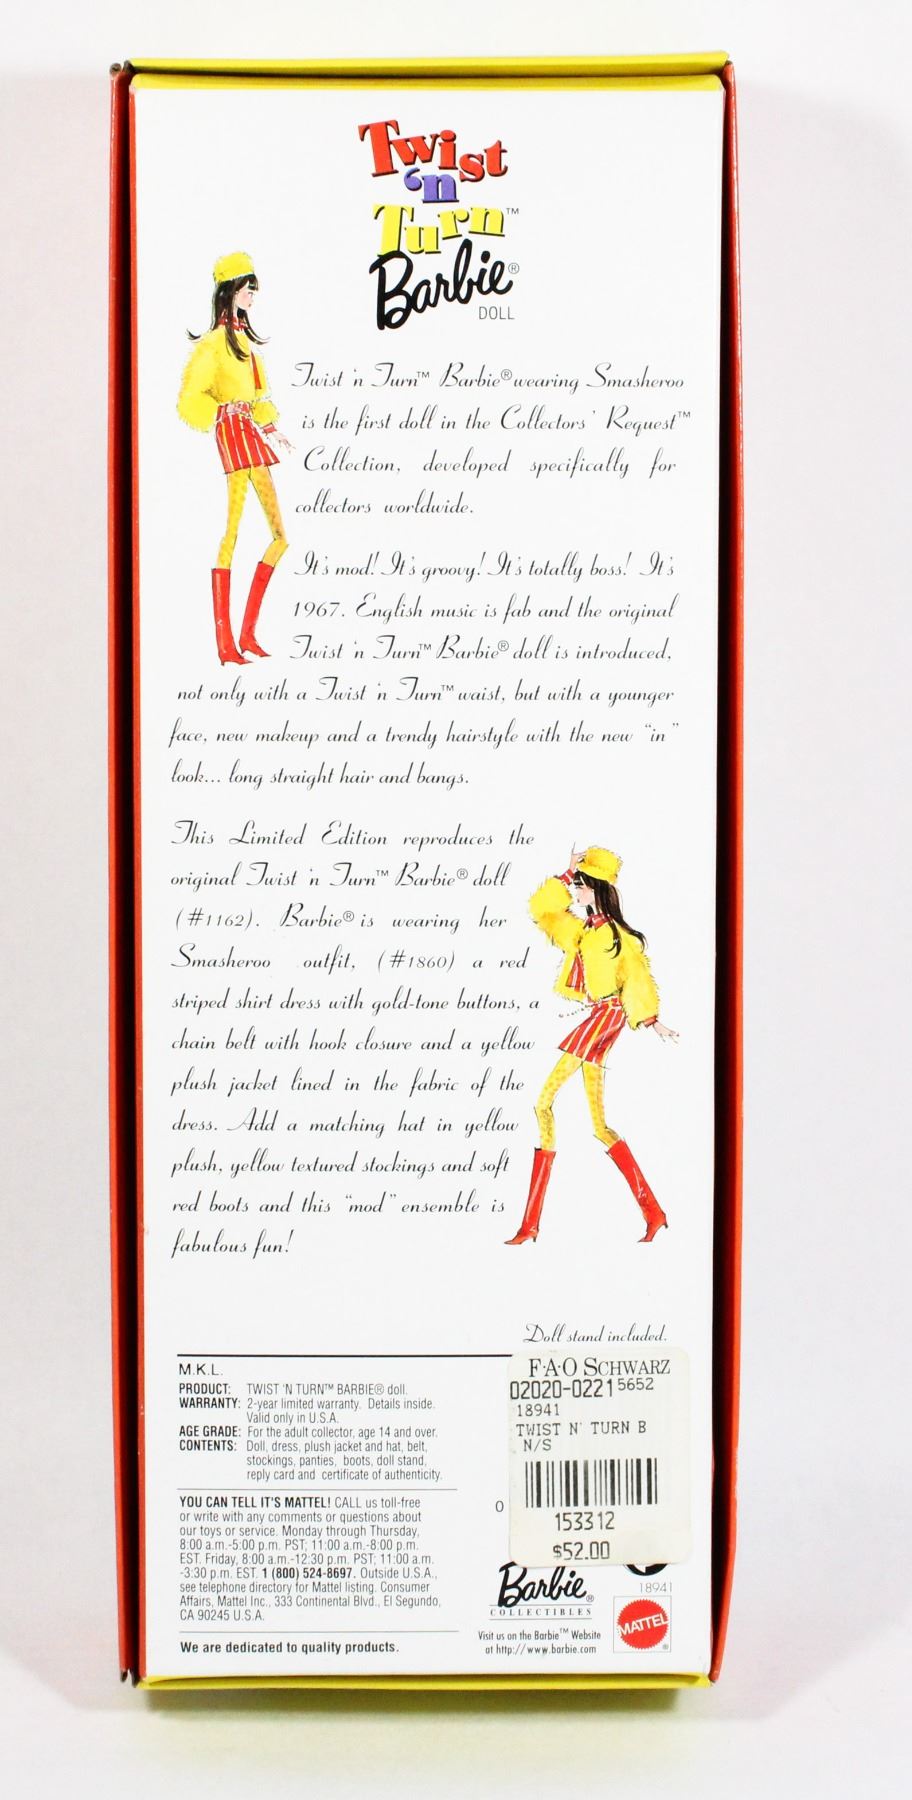 Twist
'n
Turn™
Barbie®
DOLL
Twist 'n Turn™ Barbie® wearing Smasheroo
is the first doll in the Collectors' Request™
Collection, developed specifically for
collectors worldwide.
It's mod! It's groovy! It's totally boss! It's
1967. English music is fab and the original
Twist 'n Turn™ Barbie® doll is introduced,
not only with a Twist 'n Turn™ waist, but with a younger
face, new makeup and a trendy hairstyle with the new "in"
look... long straight hair and bangs.
This Limited Edition reproduces the
original Twist 'n Turn™ Barbie® doll
(#1162). Barbie® is wearing her
Smasheroo outfit, (#1860) a red
striped shirt dress with gold-tone buttons, a
chain belt with hook closure and a yellow
plush jacket lined in the fabric of the
dress. Add a matching hat in yellow
plush, yellow textured stockings and soft
red boots and this "mod" ensemble is
fabulous fun!
Doll stand included.
M.K.L.
PRODUCT: TWIST 'N TURN™ BARBIE® doll.
WARRANTY: 2-year limited warranty. Details inside.
Valid only in U.S.A.
AGE GRADE: For the adult collector, age 14 and over.
CONTENTS: Doll, dress, plush jacket and hat, belt,
stockings, panties, boots, doll stand,
reply card and certificate of authenticity.
YOU CAN TELL IT'S MATTEL! CALL us toll-free
or write with any comments or questions about
our toys or service. Monday through Thursday,
8:00 a.m.-5:00 p.m. PST; 11:00 a.m.-8:00 p.m.
EST. Friday, 8:00 a.m.-12:30 p.m. PST; 11:00 a.m.
-3:30 p.m. EST. 1 (800) 524-8697. Outside U.S.A.,
see telephone directory for Mattel listing. Consumer
Affairs, Mattel Inc., 333 Continental Blvd., El Segundo,
CA 90245 U.S.A.
We are dedicated to quality products.
F·A·O SCHWARZ
02020-0221 5652
18941
TWIST N' TURN B
N/S
0
153312
$52.00
Barbie®
COLLECTIBLES
Visit us on the Barbie™ Website
at http://www.barbie.com
18941
MATTEL
®